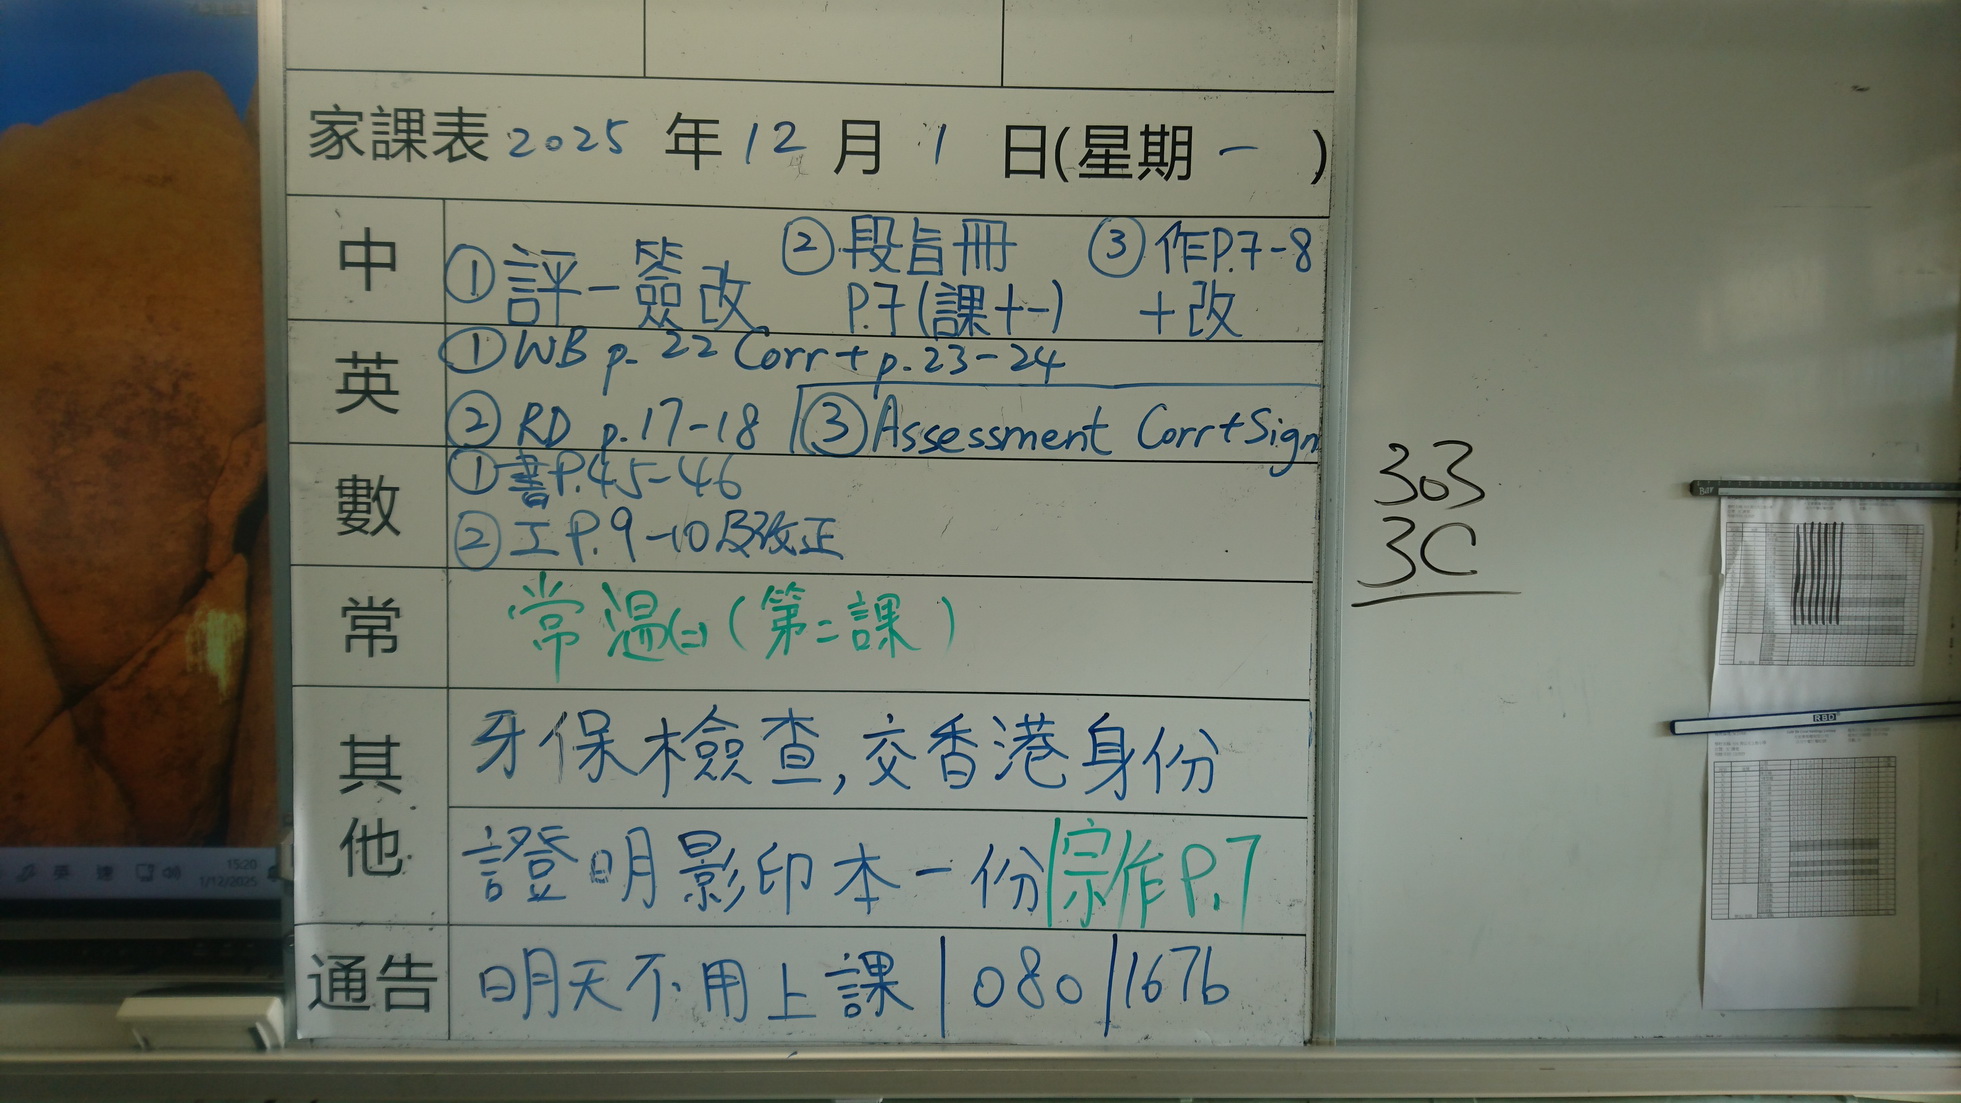 家課表 2025 年 12 月 1 日(星期 一 )
中
①評一簽改 ②段旨冊 P.7(課十一) ③作P.7-8 +改
英
①WB p. 22 Corr + p.23-24
②RD p.17-18 ③Assessment Corr+Sign
數
①書P.45-46
②工P.9-10及改正
常
常溫(二)(第二課)
其他
牙保檢查,交香港身份
證明影印本一份|宗作P.7
通告
明天不用上課|080|167b
303
3C
15:20
1/12/2025
英
速
RBD